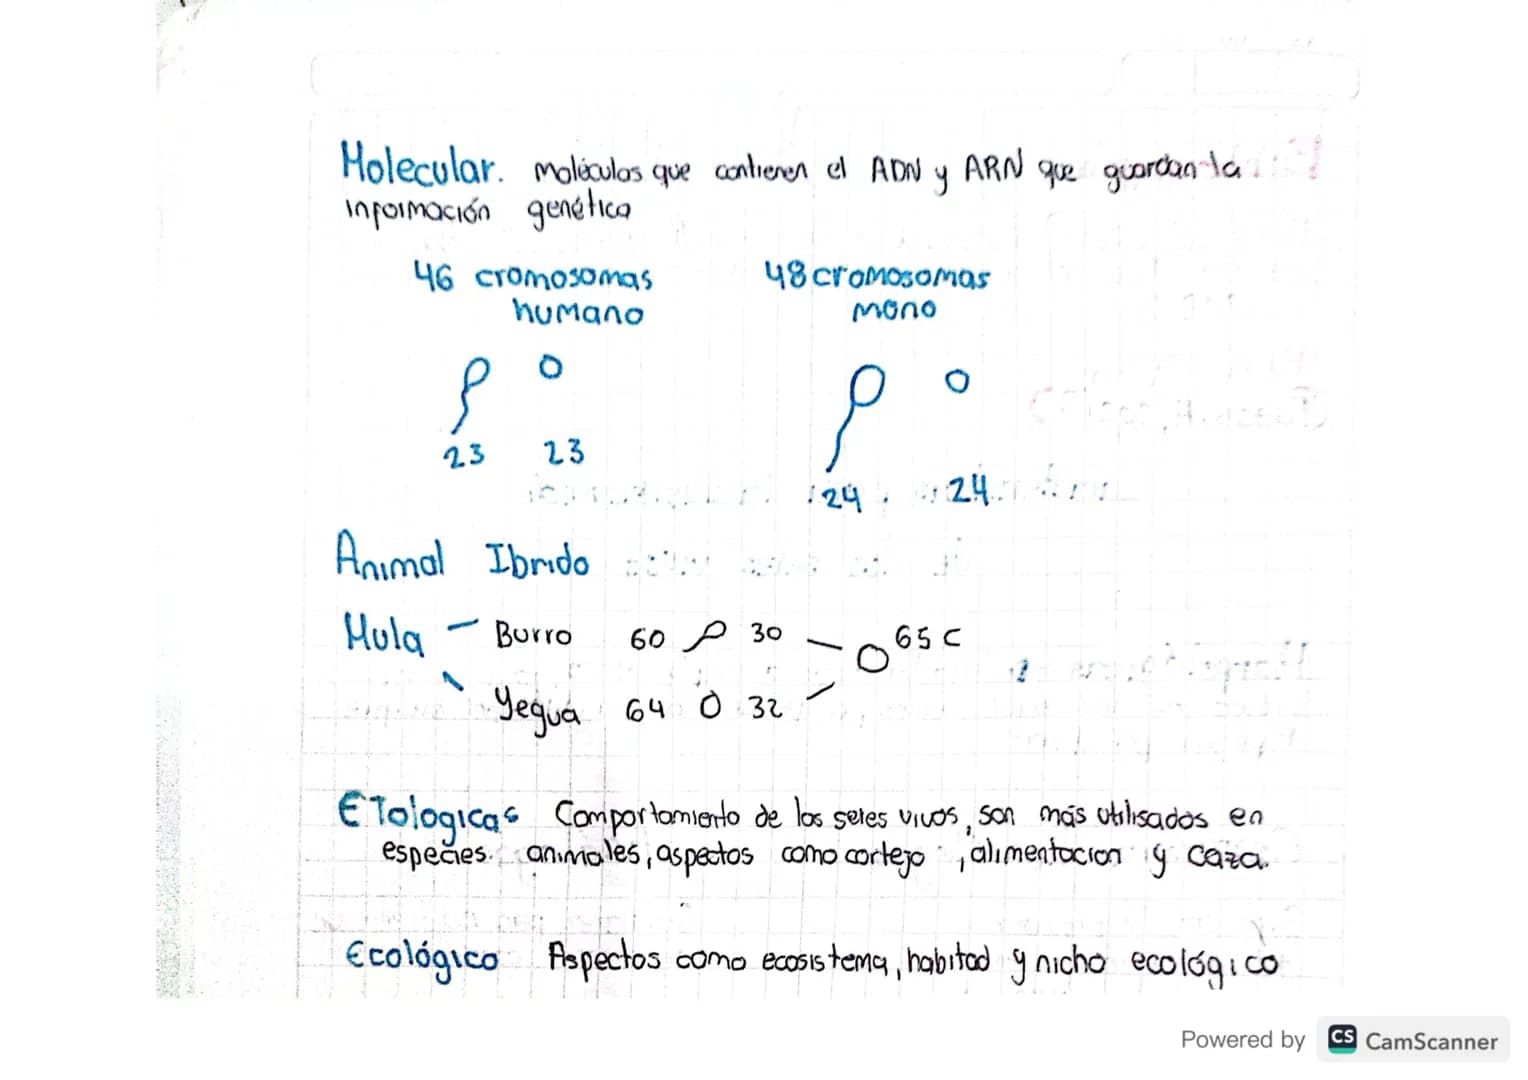 Molecular. Moléculas que contienen el ADN y ARN que guardan la
información genética
46 cromosomas
humano
48 cromosomas
mono
23 23
24 24
Animal Ibrido
Mula - Burro 60 30 - 65 C
Yegua 64 32
Etologicas Comportamiento de los seres vivos, son más utilisados en
especies animales, aspectos como cortejo, alimentacion y caza.
Ecológico Aspectos como ecosistema, habitad y nicho ecológico
Powered by CS CamScanner